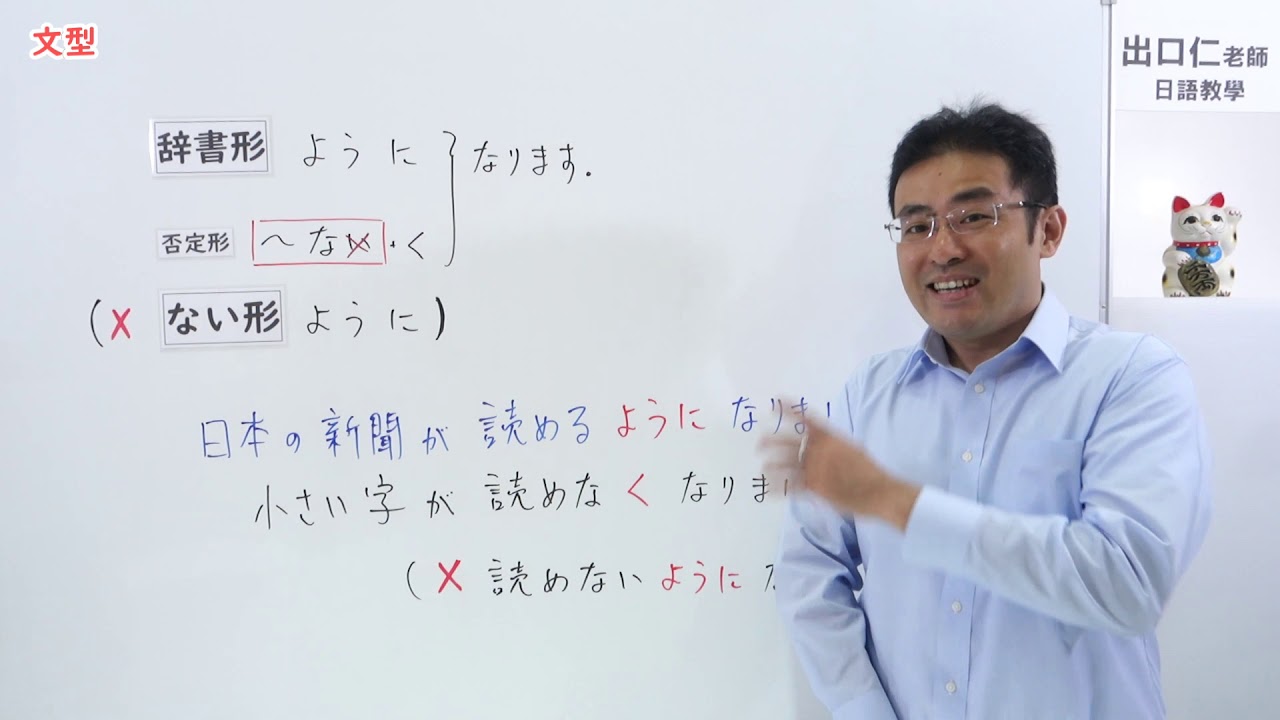 文型
出口仁老師
日語教學
辞書形 ように
なります.
否定形 ～ない・く
(X ない形 ように)
日本の新聞が読めるようになりまし
小さい字が読めなくなりまし
(X 読めないようにな